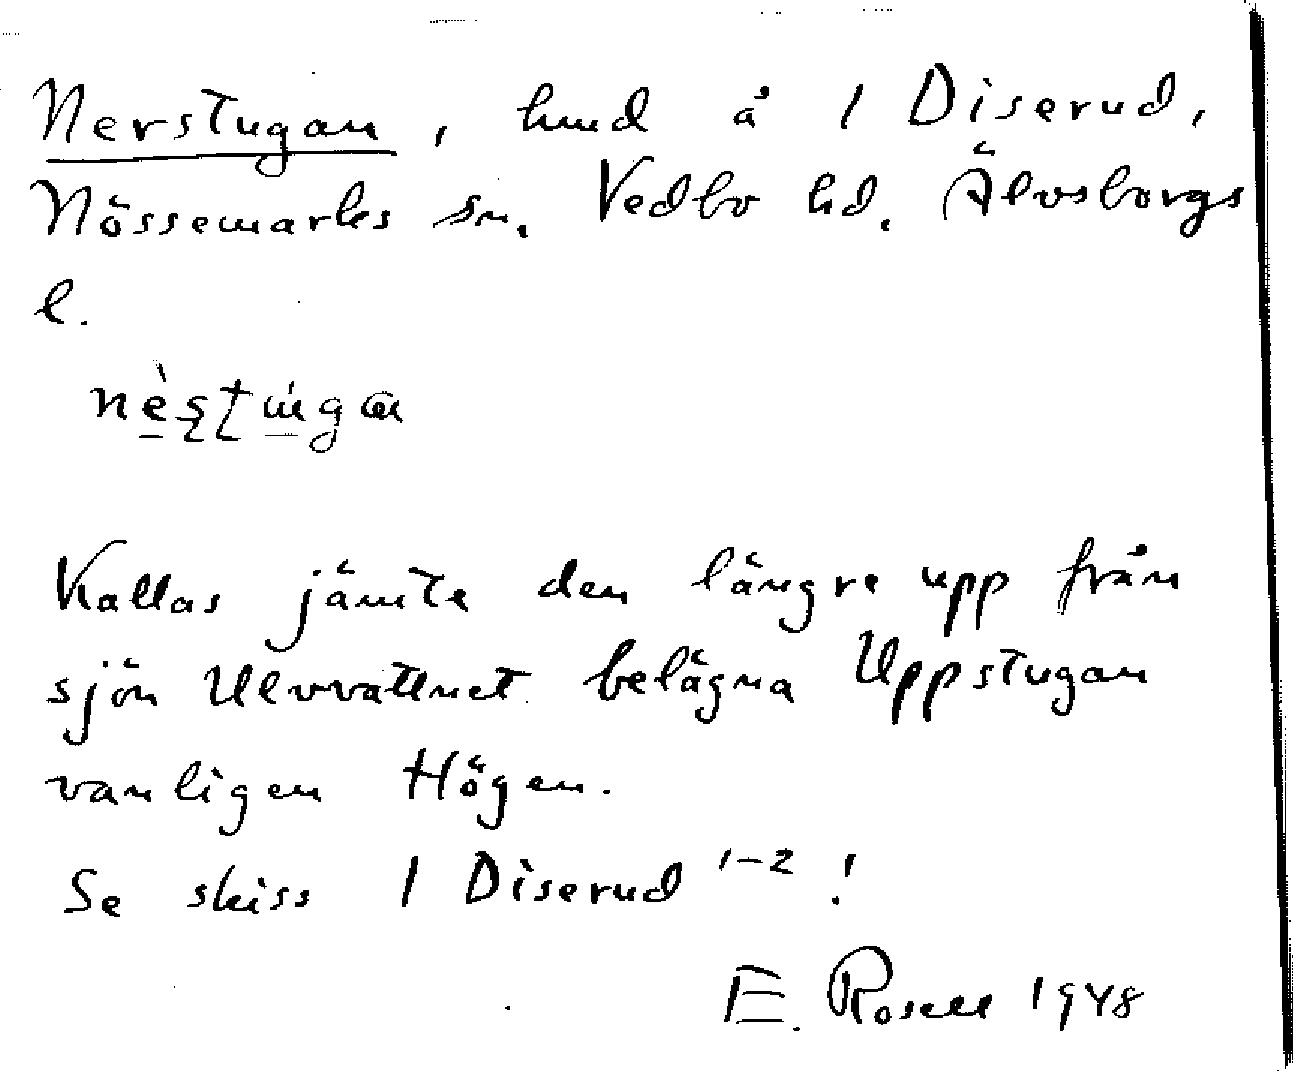 Nerstugan, hmd å 1 Diserud,
Nössemarks sn. Vedbo hd. Älvsborgs
l.
Kallas jämte den längre upp från
sjön Ulvvattnet belägna Uppstugan
vanligen Högen.
Se skiss 1 Diserud 1-2 !
E. Rosell 1948